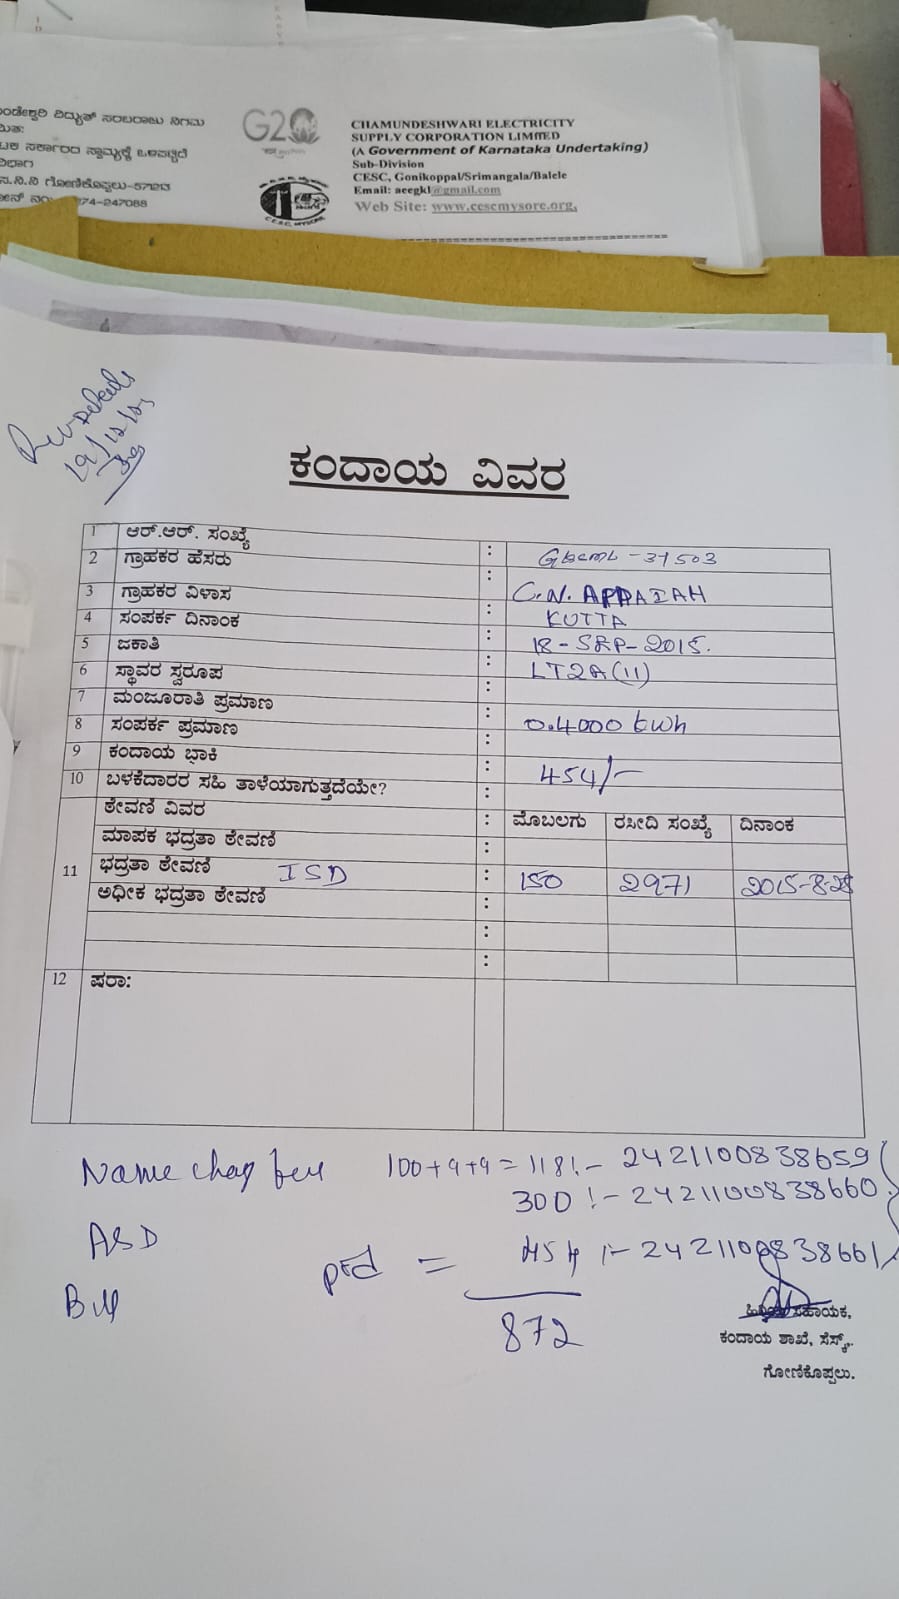 ಂಡೇಶ್ವರಿ ವಿದ್ಯುತ್ ಸರಬರಾಜು ನಿಗಮ
ಮಿತ:
ಟಕ ಸರ್ಕಾರದ ಸ್ವಾಮ್ಯಕ್ಕೆ ಒಳಪಟ್ಟಿದೆ
ವಿಭಾಗ
ಸ.ನಿ.ನಿ ಗೋಣಿಕೊಪ್ಪಲು-571213
74-247088
G20
C.E.S.C. MYSORE
CHAMUNDESHWARI ELECTRICITY
SUPPLY CORPORATION LIMITED
(A Government of Karnataka Undertaking)
Sub-Division
CESC, Gonikoppal/Srimangala/Balele
Email: aeegkl@gmail.com
Web Site: www.cescmysore.org,
19/12/
ಕಂದಾಯ ವಿವರ
1 ಆರ್.ಆರ್. ಸಂಖ್ಯೆ : 31503
2 ಗ್ರಾಹಕರ ಹೆಸರು : C.N. APPAIAH
3 ಗ್ರಾಹಕರ ವಿಳಾಸ : KUTTA
4 ಸಂಪರ್ಕ ದಿನಾಂಕ : 18-SEP-2015.
5 ಜಕಾತಿ : LT2A(11)
6 ಸ್ಥಾವರ ಸ್ವರೂಪ :
7 ಮಂಜೂರಾತಿ ಪ್ರಮಾಣ : 0.4000 kwh
8 ಸಂಪರ್ಕ ಪ್ರಮಾಣ :
9 ಕಂದಾಯ ಭಾಕಿ : 454/-
10 ಬಳಕೆದಾರರ ಸಹಿ ತಾಳೆಯಾಗುತ್ತದೆಯೇ? :
11 ಠೇವಣಿ ವಿವರ : ಮೊಬಲಗು ರಸೀದಿ ಸಂಖ್ಯೆ ದಿನಾಂಕ
ಮಾಪಕ ಭದ್ರತಾ ಠೇವಣಿ :
ಭದ್ರತಾ ಠೇವಣಿ ISD : 150 2971 2015-8-28
ಅಧೀಕ ಭದ್ರತಾ ಠೇವಣಿ :
:
:
12 ಷರಾ:
Name 100+9+9 = 118/- 2421100838659
ASD 300/- 2421100838660
Bill 454/- 2421100838661
pfd = 872
ಹಿರಿಯ ಸಹಾಯಕ,
ಕಂದಾಯ ಶಾಖೆ, ಸೆಸ್ಕ್.
ಗೋಣಿಕೊಪ್ಪಲು.